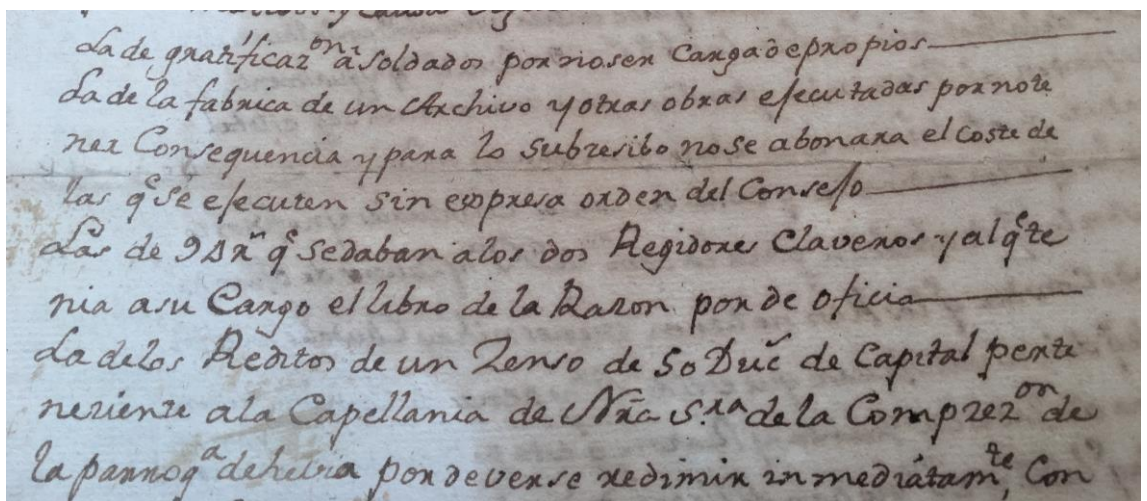 La de gratificaz.on a Soldados por no ser Carga de propios
La de la fabrica de un Archivo y otras obras executadas por note
ner Consequencia y para lo Subcesibo no se abonara el Coste de
las q.e Se executen Sin expresa orden del Consejo
Las de q.e Sedaban alos dos Regidores Claveros y al q.e te
nia asu Cargo el libro de la Razon por de oficio
La delos Reditos de un Zenso de 50 Duc.s de Capital perte
neziente ala Capellania de Nra S.ra de la Compzez.on de
la parroq.a de por deverse redimir inmediatam.te Con